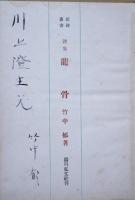 川上澄生兄
竹中郁
詩集
龍骨
竹中郁著
湯川弘文社刊